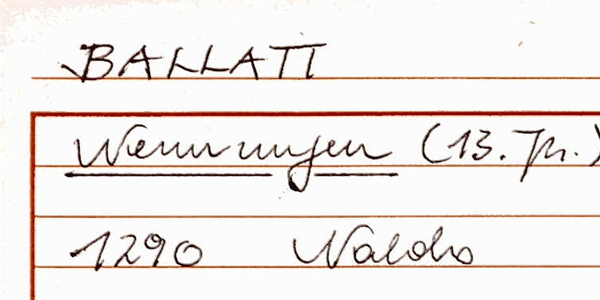 BALLATT
Wennungen (13. Jh.)
1290 Naldo